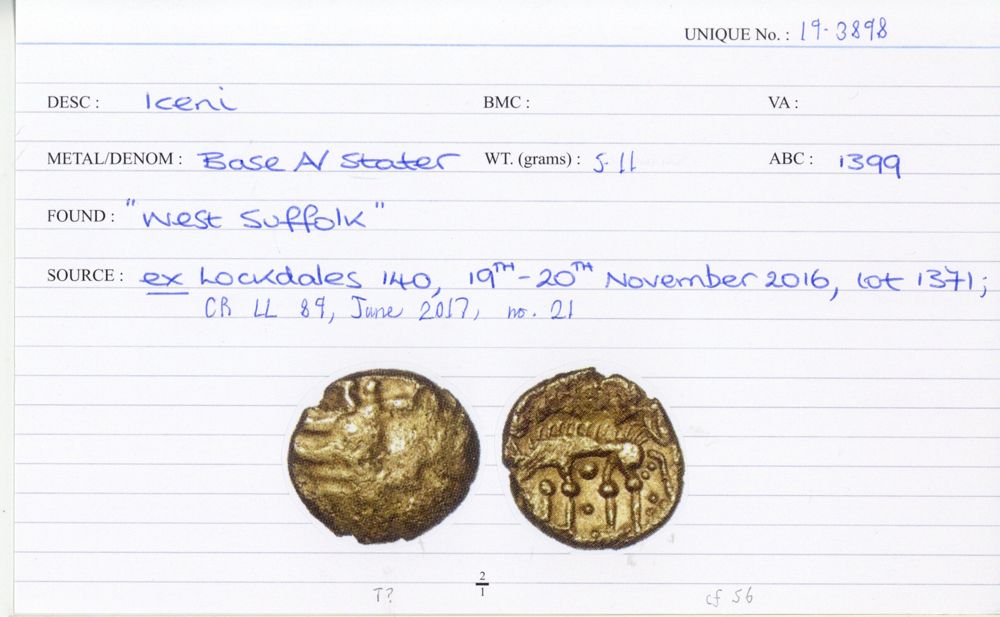 UNIQUE No. : 19-3898
DESC : Iceni BMC : VA :
METAL/DENOM : Base AV Stater WT. (grams) : 5.11 ABC : 1399
FOUND : "West Suffolk"
SOURCE : ex Lockdales 140, 19TH-20TH November 2016, lot 1371;
CR LL 89, June 2017, no. 21
2
1
T?
cf 56